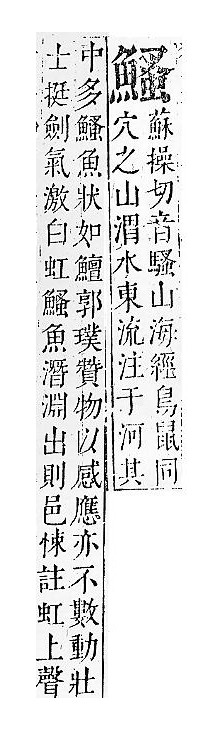 鰠
蘇操切音騷山海經鳥鼠同
穴之山渭水東流注于河其
中多鰠魚狀如鱣郭璞贊物以感應亦不數動壯
士挺劍氣激白虹鰠魚潛淵出則邑悚註虹上聲